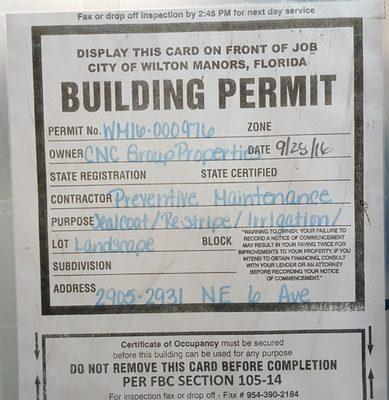 Fax or drop off inspection by 2:45 PM for next day service
DISPLAY THIS CARD ON FRONT OF JOB
CITY OF WILTON MANORS, FLORIDA
BUILDING PERMIT
PERMIT No. WM16-000976 ZONE
OWNER CNC Group Properties DATE 9/28/16
STATE REGISTRATION STATE CERTIFIED
CONTRACTOR Preventive Maintenance
PURPOSE Sealcoat/Restripe/Irrigation/
LOT Landscape BLOCK
"WARNING TO OWNER: YOUR FAILURE TO
RECORD A NOTICE OF COMMENCEMENT
MAY RESULT IN YOUR PAYING TWICE FOR
IMPROVEMENTS TO YOUR PROPERTY. IF YOU
INTEND TO OBTAIN FINANCING, CONSULT
WITH YOUR LENDER OR AN ATTORNEY
BEFORE RECORDING YOUR NOTICE
OF COMMENCEMENT."
SUBDIVISION
ADDRESS 2905-2931 NE 6 Ave
Certificate of Occupancy must be secured
before this building can be used for any purpose
DO NOT REMOVE THIS CARD BEFORE COMPLETION
PER FBC SECTION 105-14
For inspection fax or drop off - Fax # 954-390-2184